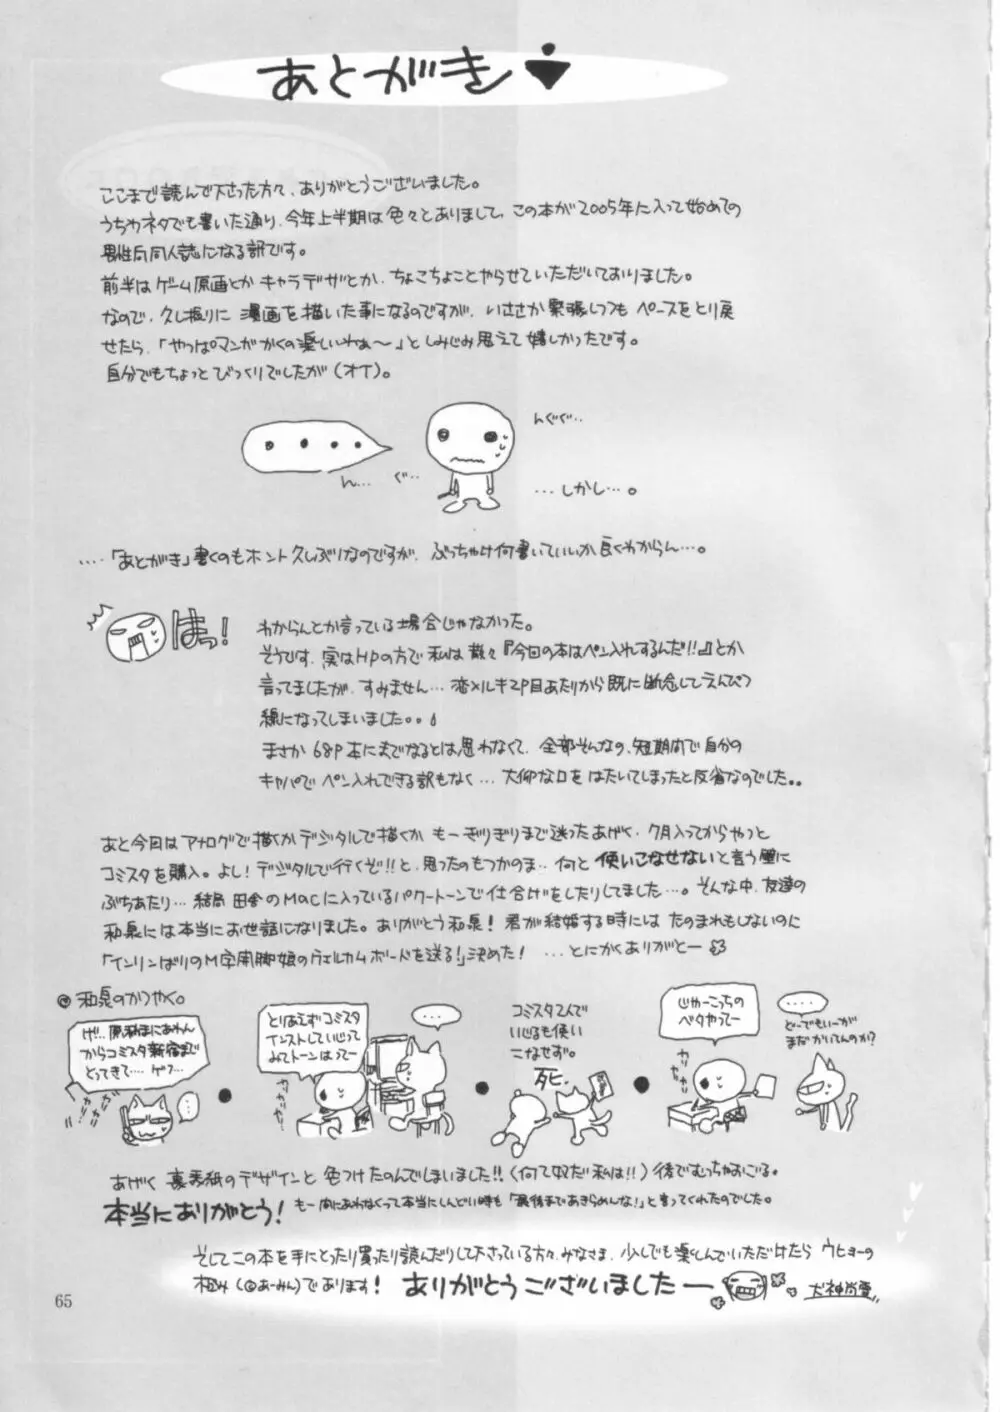 あとがき
ここまで読んで下さった方々、ありがとうございました。
うちわネタでも書いた通り、今年上半期は色々とありまして、この本が2005年に入って始めての
男性向同人誌になる訳です。
前半はゲーム原画とかキャラデザとか、ちょこちょことやらせていただいておりました。
なので、久し振りに漫画を描いた事になるのですが、いささか緊張しつつもペースをとり戻
せたら、「やっぱマンガかくの楽しいわぁ〜」としみじみ思えて嬉しかったです。
自分でもちょっとびっくりでしたが(オイ)。
・・・・
んぐぐ…
ん… ぐ…
…しかし…。
….「あとがき」書くのもホント久しぶりなのですが、ぶっちゃけ何書いていいか良くわからん…。
はっ!
わからんとか言っている場合じゃなかった。
そうです、実はHPの方で私は散々『今回の本はペン入れするんだ!!』とか
言ってましたが、すみません…恋メルキ2P目あたりから既に断念してえんぴつ
線になってしまいました。。
まさか68P本にまでなるとは思わなくて、全部そんなの、短期間で自分の
キャパでペン入れできる訳もなく…大仰な口をはたいてしまったと反省なのでした。。
あと今回はアナログで描くかデジタルで描くかもーぎりぎりまで迷ったあげく、7月入ってからやっと
コミスタを購入。よし!デジタルで行くぞ!!と、思ったのもつかのま…何と使いこなせないと言う壁に
ぶちあたり…結局田舎のMacに入っているパワートーンで仕上げをしたりしてました…。そんな中、友達の
和泉には本当にお世話になりました。ありがとう和泉!君が結婚する時にはたのまれもしないのに
「インリンばりのM字開脚娘のウェルカムボードを送る!」決めた! …とにかくありがとー
和泉のかつやく。
げ!…原稿まにあわん
からコミスタ新宿まで
とってきて…、ゲフ…
…
とりあえずコミスタ
インストして、いじって
みてトーンはってー
…
コミスタ2人で
いじるも使い
こなせず。
死.
じゃーこっちの
ベタやってー
カリカリ
….
どーでもいーが
まだかいてんのか?
あげく裏表紙のデザインと色つけたのんでしまいました!!(何て奴だ私は!!)後でむっちゃおごる。
本当にありがとう! もー間にあわなくって本当にしんどい時も「最後まであきらめんな!」と言ってくれたのでした。
そしてこの本を手にとったり買ったり読んだりして下さっている方々、みなさま、少しでも楽しんでいただけたらウヒョーの
極み(©あーみん)であります! ありがとうございましたー
65